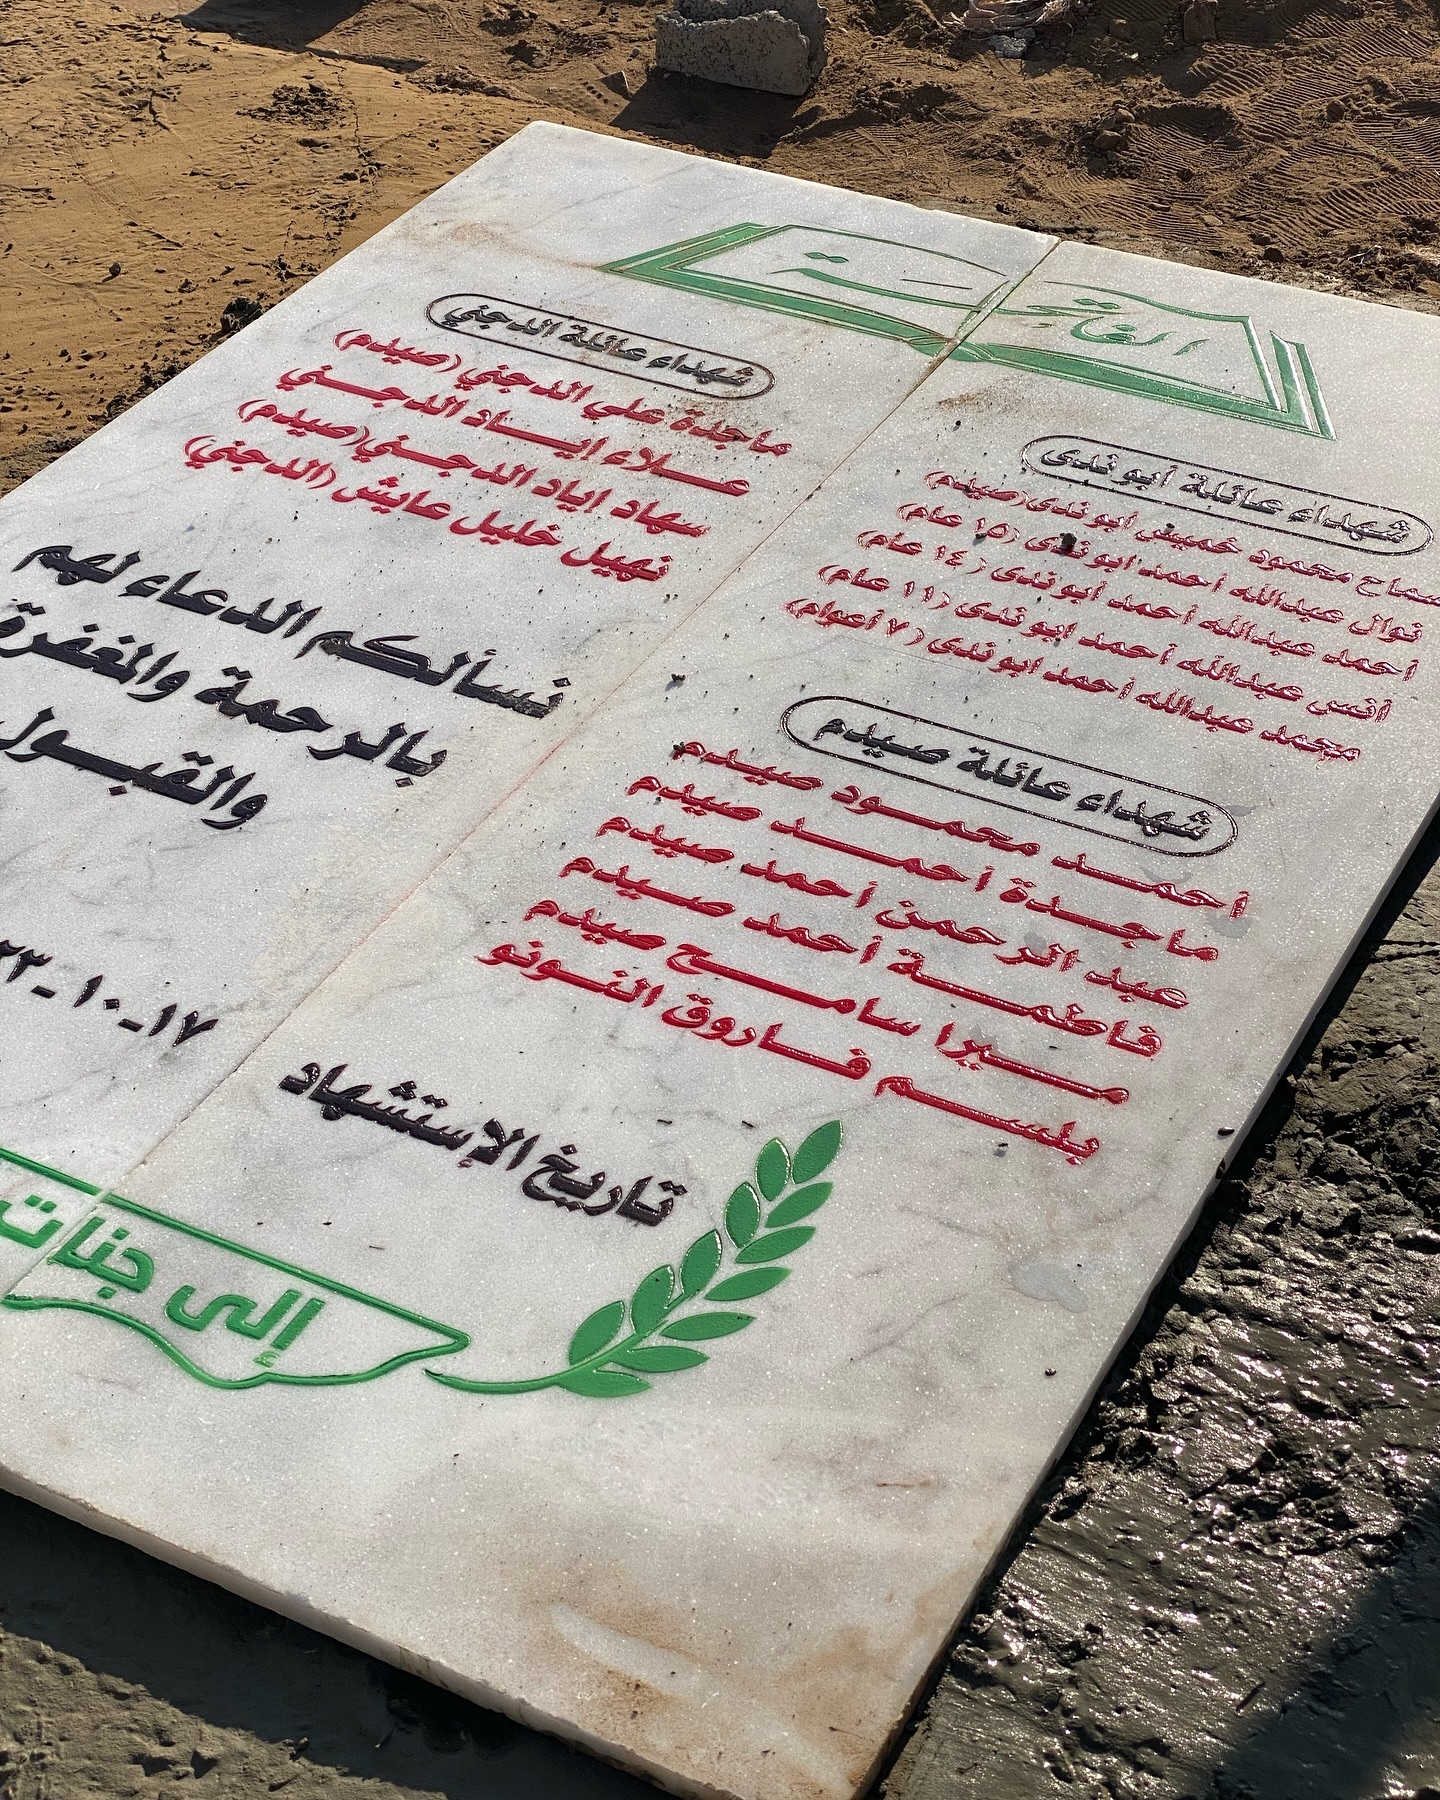 الفاتحة
شهداء عائلة أبو ندى
سماح محمود خميس أبو ندى (صيدم)
نوال عبدالله أحمد ابو ندى (١٥ عام)
أحمد عبدالله أحمد أبو ندى (١٤ عام)
أنس عبدالله أحمد ابو ندى (١١ عام)
محمد عبدالله أحمد ابو ندى (٧ أعوام)
شهداء عائلة صيدم
أحمد محمود صيدم
ماجدة أحمد صيدم
عبد الرحمن أحمد صيدم
فاطمة أحمد صيدم
ميرا سامح صيدم
بلسم فاروق النونو
شهداء عائلة الدجني
ماجدة علي الدجني (صيدم)
علاء إياد الدجني
سهاد إياد الدجني (صيدم)
نهيل خليل عايش (الدجني)
نسألكم الدعاء لهم
بالرحمة والمغفرة
والقبول
تاريخ الإستشهاد
١٧-١٠-
إلى جنات